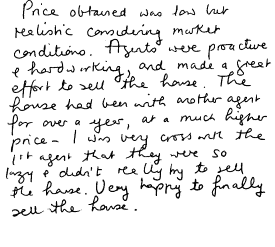 Price obtained was low but
realistic considering market
conditions. Agents were proactive
& hardworking, and made a great
effort to sell the house. The
house had been with another agent
for over a year, at a much higher
price - I was very cross with the
1st agent that they were so
lazy & didn't really try to sell
the house. Very happy to finally
sell the house.